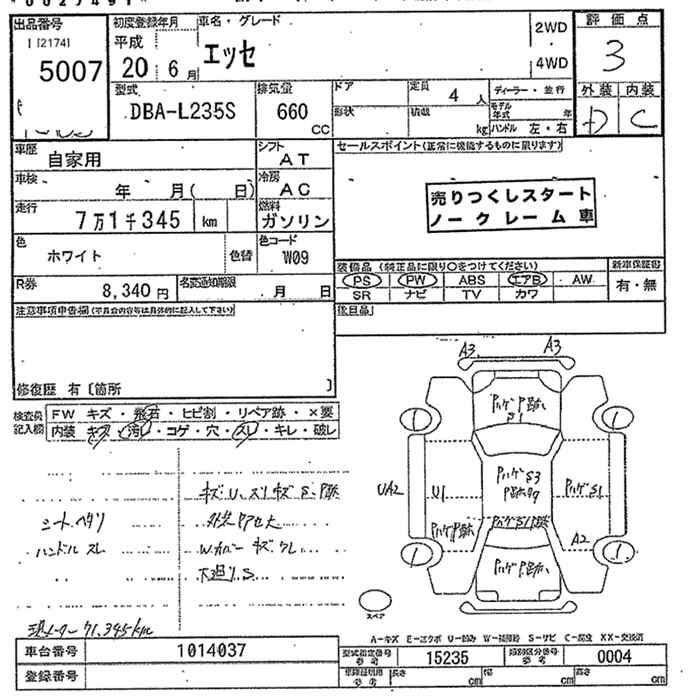 出品番号
1 [2174]
5007
初度登録年月
平成
20年6月
車名・グレード
エッセ
2WD
4WD
評価点
3
外装 内装
D C
型式
DBA-L235S
排気量
660
CC
ドア
形状
定員
4人
積載
kg
ディーラー・並行
モデル年式 年
ハンドル 左・右
車歴
自家用
シフト
AT
車検
年 月( 日)
冷房
AC
走行
7万1千345 km
燃料
ガソリン
色
ホワイト
色替
色コード
W09
R券
8,340円
名変通知期限
月 日
セールスポイント(正常に機能するものに限ります)
売りつくしスタート
ノークレーム車
装備品 (純正品に限り○をつけてください)
PS PW ABS エアB AW
SR ナビ TV カワ
新車保証書
有・無
後日品
注意事項申告欄(不具合内容等は具体的に記入して下さい)
修復歴 有 〔箇所 〕
検査員
記入欄
FW キズ・飛石・ヒビ割・リペア跡・×要
内装 キズ・汚レ・コゲ・穴・スレ・キレ・破レ
シートヘタリ
ハンドルスレ
キズ U、スリキズ S、P跡
Wカバーキズ、クレ
下廻りS
現メーター 71,345km
A3
A3
UA2
U1
A2
スペア
A-キズ E-エクボ U-凹み W-補修跡 S-サビ C-腐食 XX-交換済
車台番号
1014037
登録番号
型式指定番号
参考
15235
類別区分番号
参考
0004
車庫証明用
参考
長さ cm
幅 cm
高さ cm